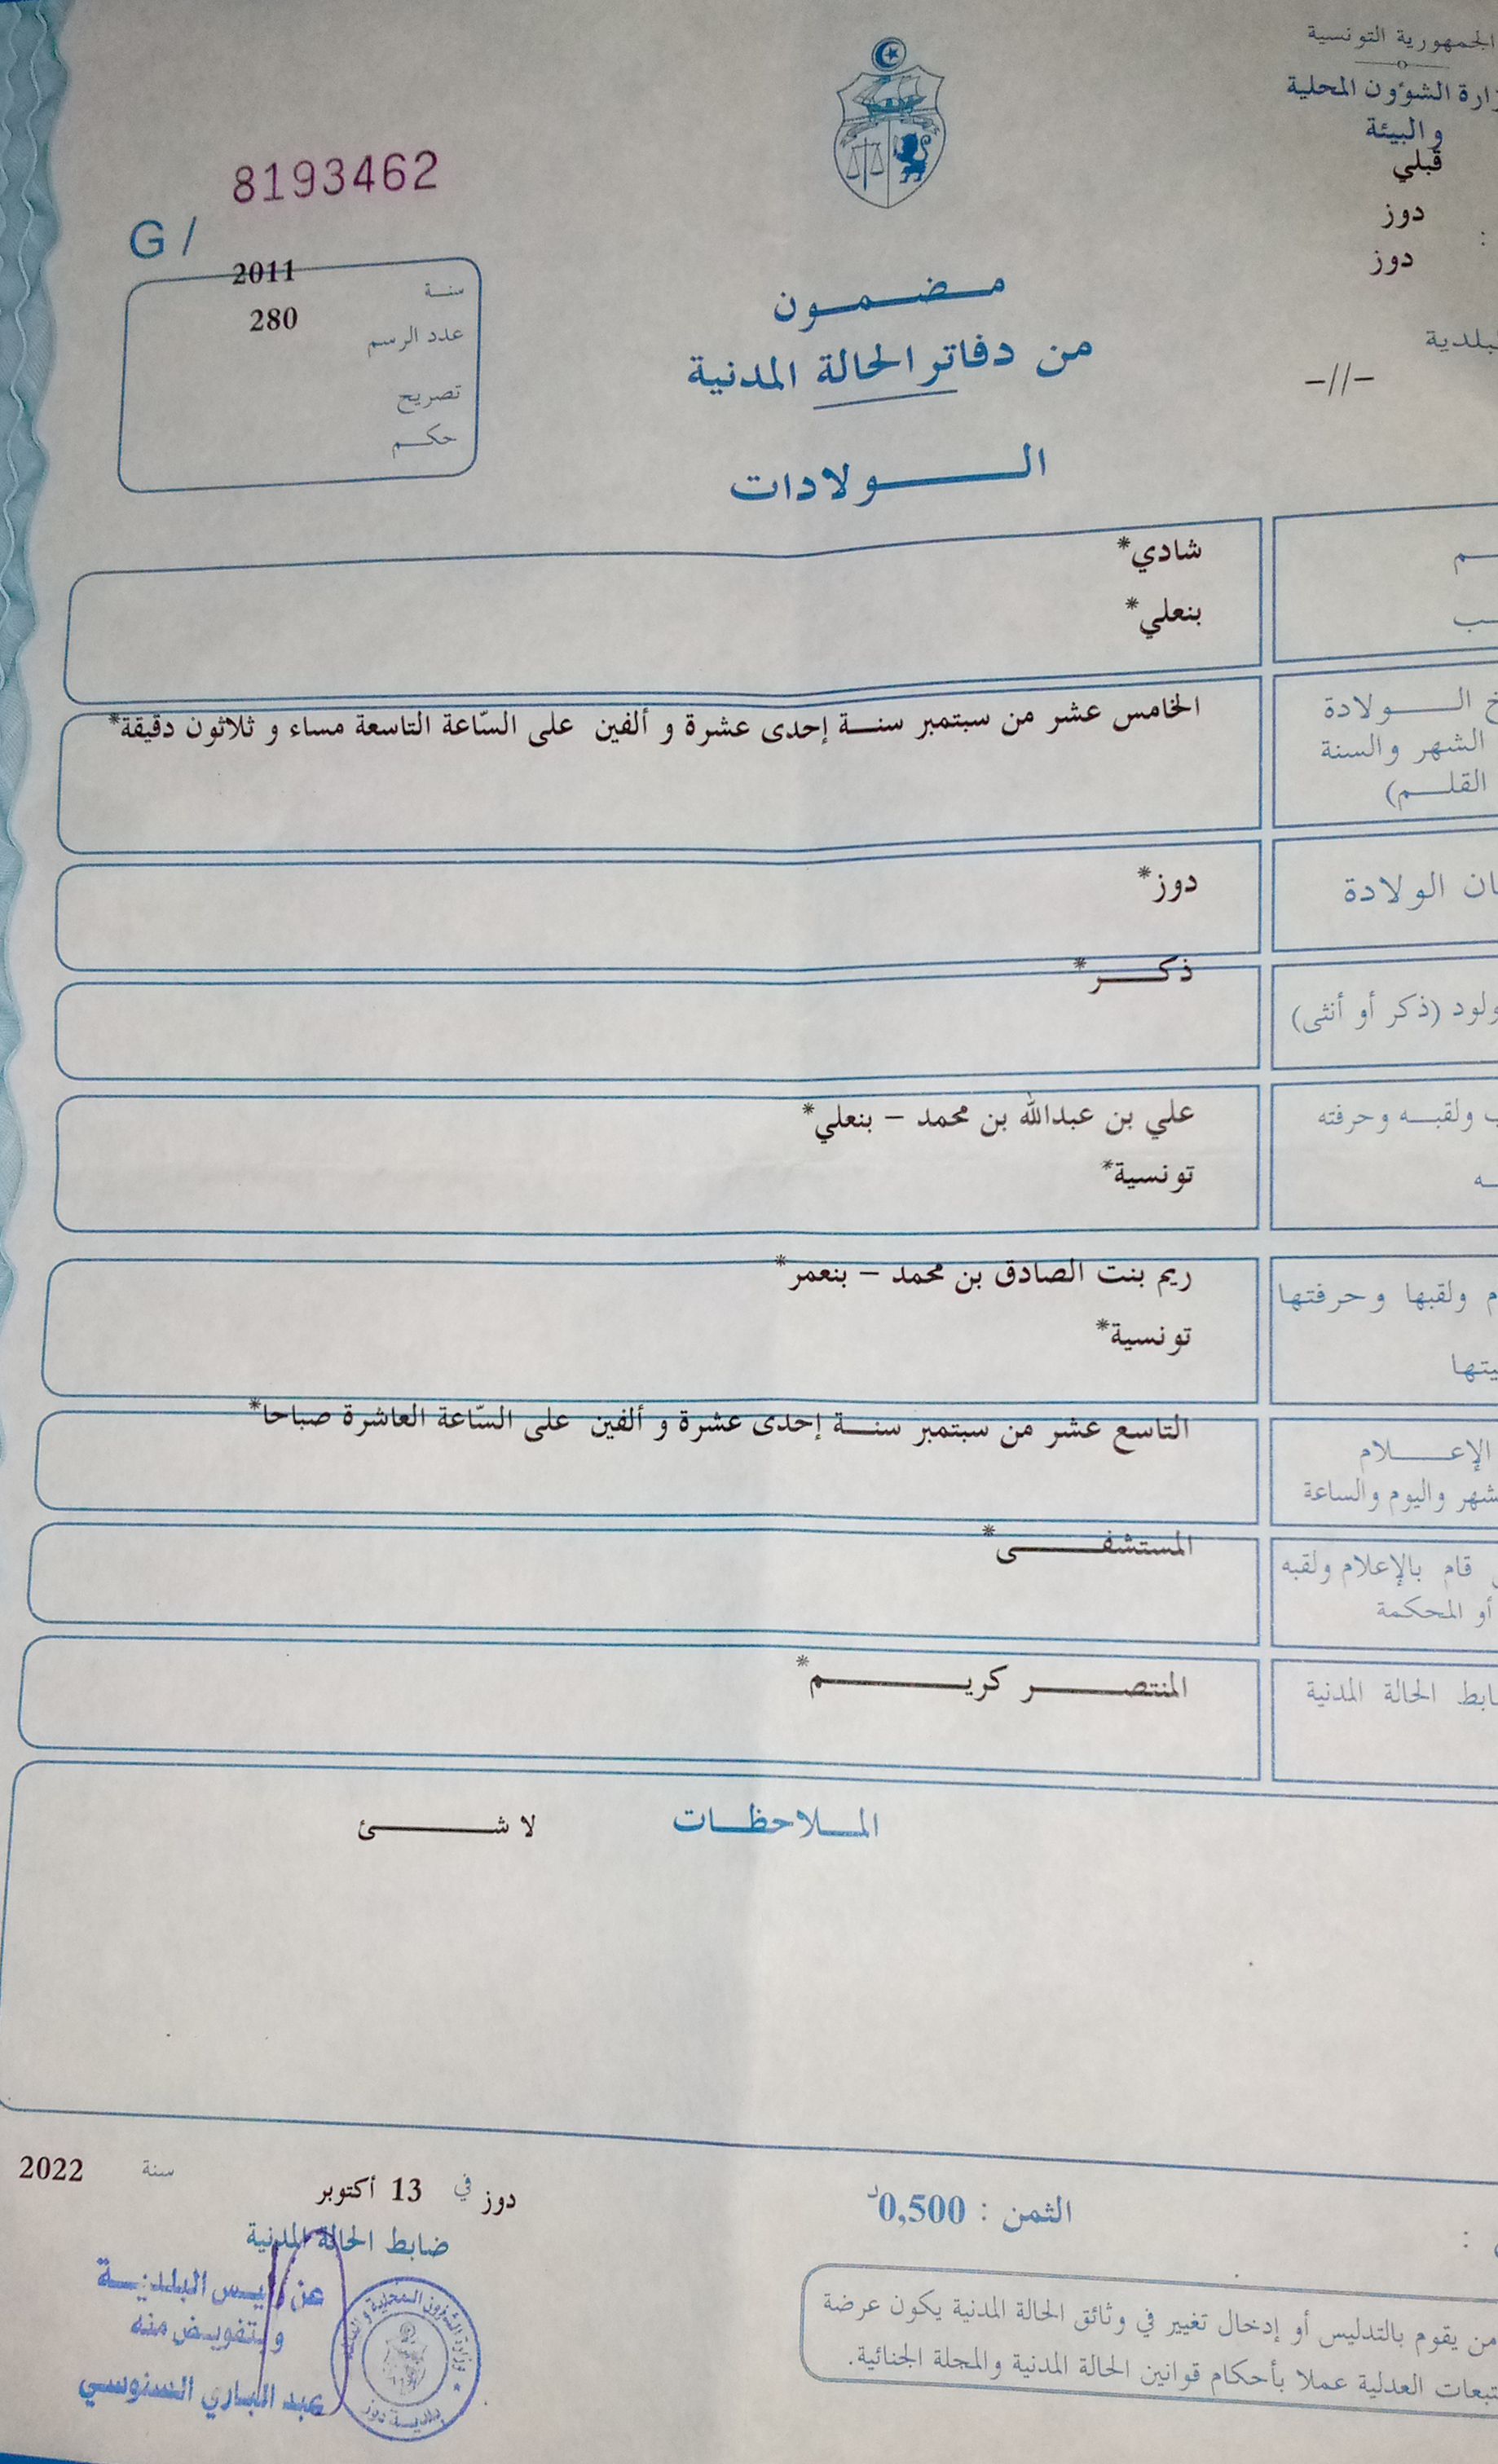 الجمهورية التونسية
وزارة الشؤون المحلية
والبيئة
قبلي
دوز
دوز
البلدية
-//-
8193462
G /
سنة 2011
عدد الرسم 280
تصريح
حكم
مضمون
من دفاتر الحالة المدنية
الولادات
شادي*
بنعلي*
الولادة
الشهر والسنة
القلم)
الخامس عشر من سبتمبر سنة إحدى عشرة و ألفين على السّاعة التاسعة مساء و ثلاثون دقيقة*
الولادة
دوز*
(ذكر أو أنثى)
ذكر*
ولقبه وحرفته
علي بن عبدالله بن محمد - بنعلي*
تونسية*
ولقبها وحرفتها
ريم بنت الصادق بن محمد - بنعمر*
تونسية*
الإعلام
واليوم والساعة
التاسع عشر من سبتمبر سنة إحدى عشرة و ألفين على السّاعة العاشرة صباحا*
قام بالإعلام ولقبه
أو المحكمة
المستشفى*
الحالة المدنية
المنتصر كريم*
الملاحظات لا شئ
دوز في 13 أكتوبر سنة 2022
الثمن : 0,500د
ضابط الحالة المدنية
عن رئيس البلدية
وبتفويض منه
عبد الباري السنوسي
وزارة الشؤون المحلية و البيئة
بلدية دوز
من يقوم بالتدليس أو إدخال تغيير في وثائق الحالة المدنية يكون عرضة
العدلية عملا بأحكام قوانين الحالة المدنية والمجلة الجنائية.